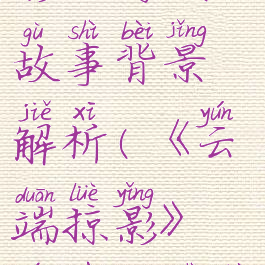 gù shì bèi jǐng
故事背景
jiě xī yún
解析(《云
duān lüè yǐng
端掠影》